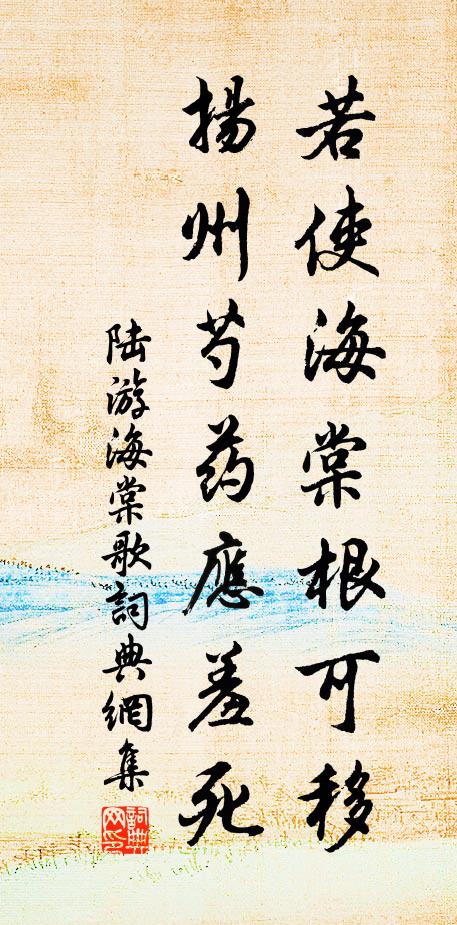 若使海棠根可移
揚州芍药應羞死
陆游海棠歌詞典網集